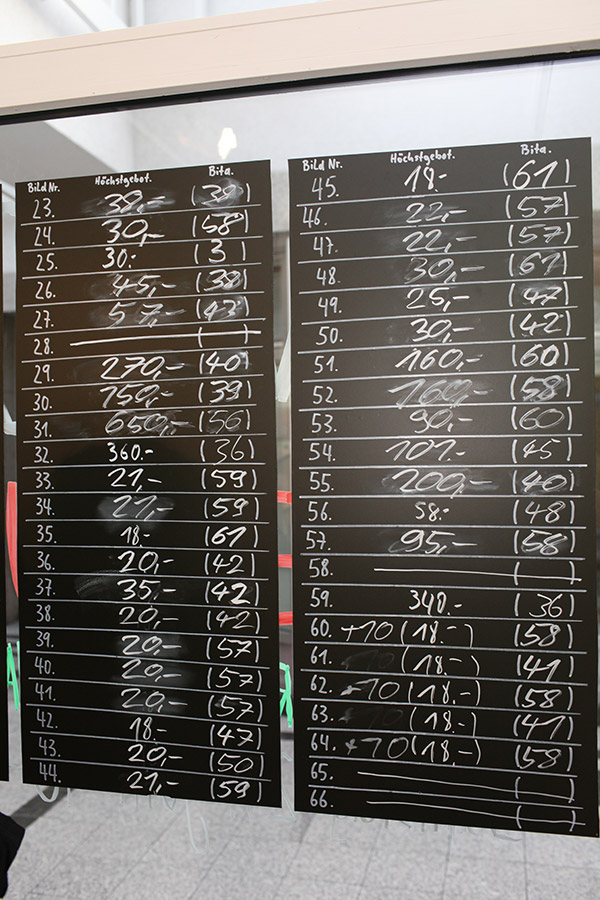 Bild Nr. Höchstgebot. Bita.
23. 38,- (38)
24. 30,- (58)
25. 30.- (3)
26. 45,- (38)
27. 57,- (43)
28. ( )
29. 270,- (40)
30. 750,- (39)
31. 650,- (56)
32. 360.- (36)
33. 21,- (59)
34. 21,- (59)
35. 18- (61)
36. 20,- (42)
37. 35,- (42)
38. 20,- (42)
39. 20,- (57)
40. 20,- (57)
41. 20,- (57)
42. 18.- (47)
43. 20,- (50)
44. 21,- (59)
Bild Nr. Höchstgebot. Bita.
45. 18.- (61)
46. 22,- (57)
47. 22,- (57)
48. 30,- (61)
49. 25,- (47)
50. 30,- (42)
51. 160.- (60)
52. 160,- (58)
53. 90,- (60)
54. 101.- (45)
55. 200,- (40)
56. 58.- (48)
57. 95,- (58)
58. ( )
59. 340.- (36)
60. +10 (18.-) (58)
61. (18.-) (41)
62. +10 (18.-) (58)
63. (18.-) (41)
64. +10 (18.-) (58)
65. ( )
66. ( )